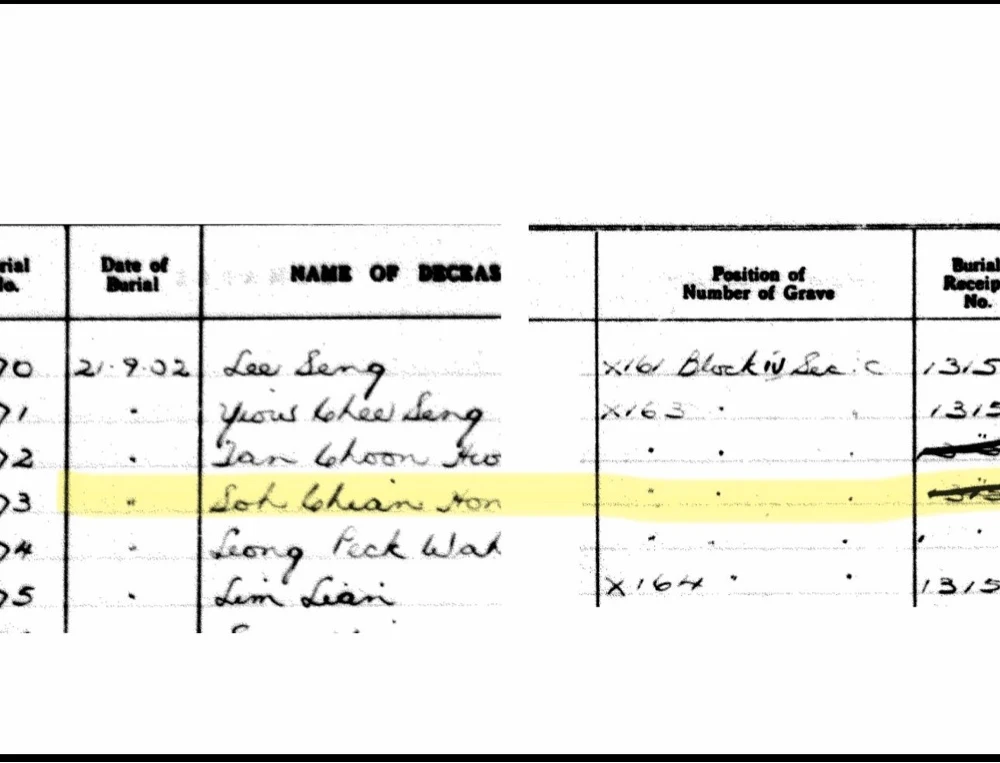 rial No. Date of Burial NAME OF DECEAS Position of Number of Grave Burial Receip No.
70 21.9.02 Lee Seng X161 Block iv Sec. C 1315
71 " Yiow Chee Seng X163 " " 1315
72 " Tan Choon " " "
73 " Soh Chian Hon " " "
74 " Leong Peck Wah " " " " "
75 " Lim Lian X164 " " 1315